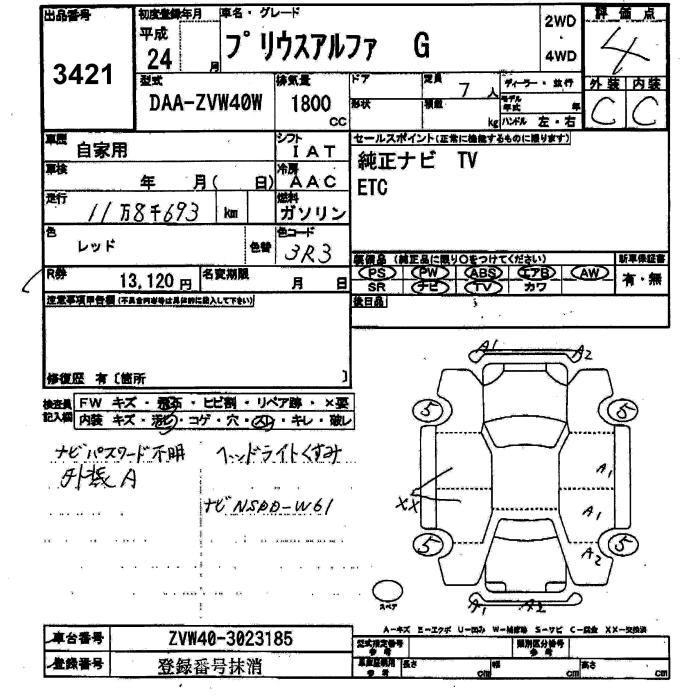 出品番号 3421
初度登録年月 平成 24 月
車名・グレード プリウスアルファ G
2WD・4WD
評価点 4
型式 DAA-ZVW40W
排気量 1800 CC
ドア 定員 7 人 ディーラー・並行
形状 積数 kg モデル年式 年 ハンドル 左・右
外装 内装
C C
車歴 自家用
シフト IAT
車検 年 月( 日)
冷房 AAC
走行 11万8千693 km
燃料 ガソリン
色 レッド 色替
色コード 3R3
セールスポイント(正常に機能するものに限ります)
純正ナビ TV
ETC
装備品 (純正品に限り○をつけてください)
新車保証書
PS PW ABS エアB AW
有・無
SR ナビ TV カワ
後日品
R券 13,120円
名変期限 月 日
注意事項申告欄(不具合内容等は具体的に記入して下さい)
修復歴 有〔箇所 〕
検査員記入欄
FW キズ・飛石・ヒビ割・リペア跡・×要
内装 キズ・汚レ・コゲ・穴・スレ・キレ・破レ
ナビパスワード不明 ヘッドライトくすみ
外装A
ナビNSDD-W61
A1 A2
5 5
A1
XX
A1
A2
5 5
スペア
A1 A2
A-キズ E-エクボ U-凹み W-補修跡 S-サビ C-腐食 XX-交換済
車台番号 ZVW40-3023185
型式指定番号 参考
類別区分番号 参考
登録番号 登録番号抹消
参考 長さ cm 幅 cm 高さ cm